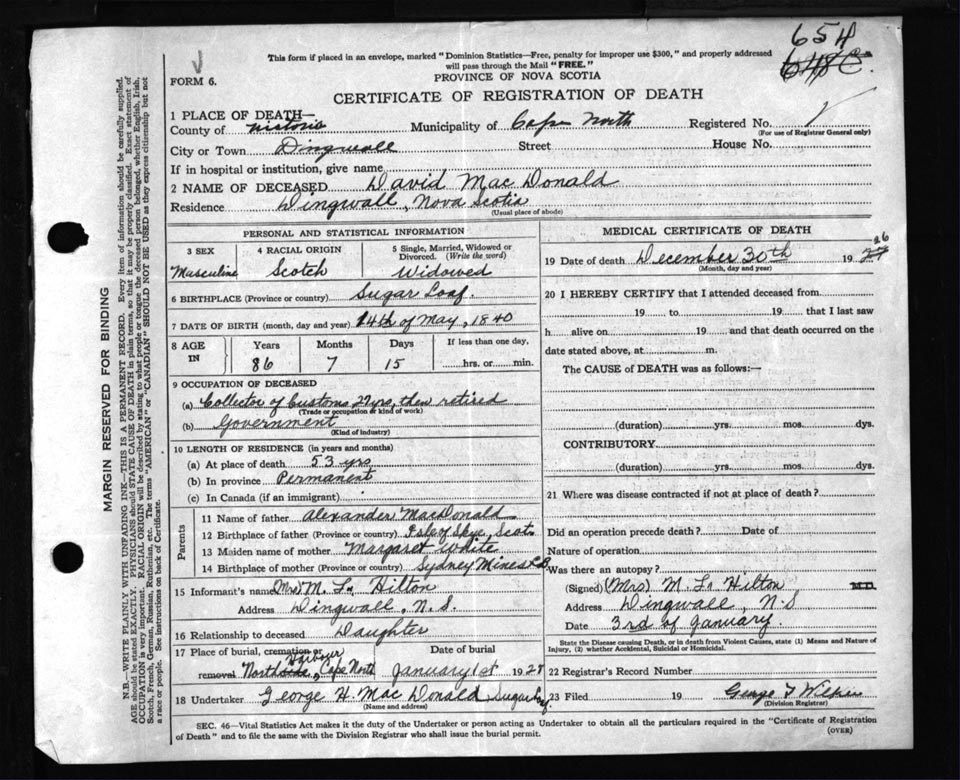 654
648C.
This form if placed in an envelope, marked "Dominion Statistics—Free, penalty for improper use $300," and properly addressed
will pass through the Mail "FREE."
FORM 6.
PROVINCE OF NOVA SCOTIA
CERTIFICATE OF REGISTRATION OF DEATH
1 PLACE OF DEATH—
County of Victoria Municipality of Cape North Registered No. 1
(For use of Registrar General only)
City or Town Dingwall Street House No.
If in hospital or institution, give name
2 NAME OF DECEASED David MacDonald
Residence Dingwall, Nova Scotia
(Usual place of abode)
PERSONAL AND STATISTICAL INFORMATION
3 SEX Masculine
4 RACIAL ORIGIN Scotch
5 Single, Married, Widowed or Divorced. (Write the word) Widowed
6 BIRTHPLACE (Province or country) Sugar Loaf.
7 DATE OF BIRTH (month, day and year) 14th of May, 1840
8 AGE IN Years Months Days If less than one day,
86 7 15 hrs. or min.
9 OCCUPATION OF DECEASED
(a) Collector of Customs 27 yrs, then retired
(Trade or occupation & kind of work)
(b) Government
(Kind of industry)
10 LENGTH OF RESIDENCE (in years and months)
(a) At place of death 53 yrs
(b) In province Permanent
(c) In Canada (if an immigrant)
Parents
11 Name of father Alexander MacDonald
12 Birthplace of father (Province or country) Isle of Skye, Scot.
13 Maiden name of mother Margaret White
14 Birthplace of mother (Province or country) Sydney Mines C.B.
15 Informant's name (Mrs) M. L. Hilton
Address Dingwall, N.S.
16 Relationship to deceased Daughter
17 Place of burial, cremation or removal Harbour, Cape North
Date of burial January 1st 1928
18 Undertaker George H. MacDonald
(Name and address)
MEDICAL CERTIFICATE OF DEATH
19 Date of death December 30th 19 27 26
(Month, day and year)
20 I HEREBY CERTIFY that I attended deceased from
19 to 19 that I last saw
h alive on 19 and that death occurred on
date stated above, at m.
The CAUSE of DEATH was as follows:—
(duration) yrs. mos. dys.
CONTRIBUTORY
(duration) yrs. mos. dys.
21 Where was disease contracted if not at place of death?
Did an operation precede death? Date of
Nature of operation
Was there an autopsy?
(Signed) (Mrs) M. L. Hilton M.D.
Address Dingwall, N.S
Date 3rd of January.
State the Disease causing Death, or in death from Violent Causes, state (1) Means and Nature of
Injury, (2) whether Accidental, Suicidal or Homicidal.
22 Registrar's Record Number
23 Filed 19 George
(Division Registrar)
SEC. 46—Vital Statistics Act makes it the duty of the Undertaker or person acting as Undertaker to obtain all the particulars required in the "Certificate of Registration
of Death" and to file the same with the Division Registrar who shall issue the burial permit.
(OVER)
MARGIN RESERVED FOR BINDING
N.B.—WRITE PLAINLY WITH UNFADING INK—THIS IS A PERMANENT RECORD. Every item of information should be carefully supplied.
AGE should be stated EXACTLY. PHYSICIANS should STATE CAUSE OF DEATH in plain terms, so that it may be properly classified. Exact statement of
OCCUPATION is very important. RACIAL ORIGIN will be described by stating to what people or tongue the deceased person belonged, whether English, Irish,
Scotch, French, German, Russian, Ruthenian, etc. The terms "AMERICAN" or "CANADIAN" SHOULD NOT BE USED as they express citizenship but not
a race or people. See instructions on back of Certificate.